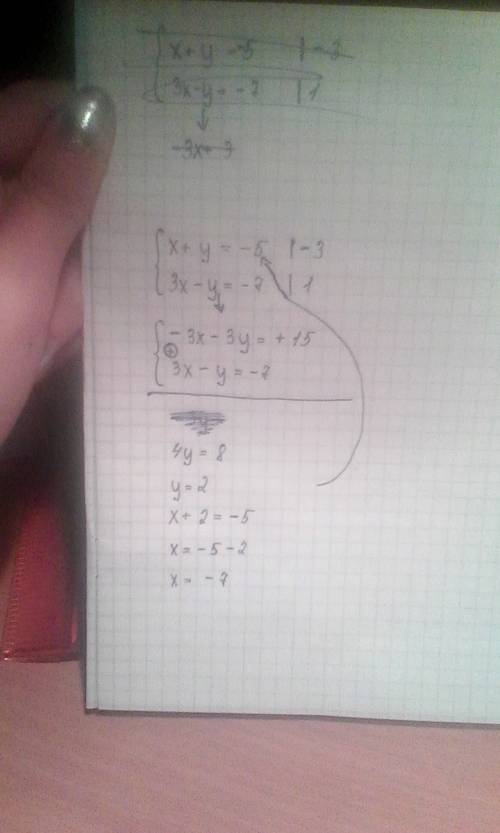 x + y = -5 | -3
3x - y = -7 | 1
-3x + 3
x + y = -5 | -3
3x - y = -7 | 1
-3x - 3y = +15
⊕
3x - y = -7
4y = 8
y = 2
x + 2 = -5
x = -5 - 2
x = -7